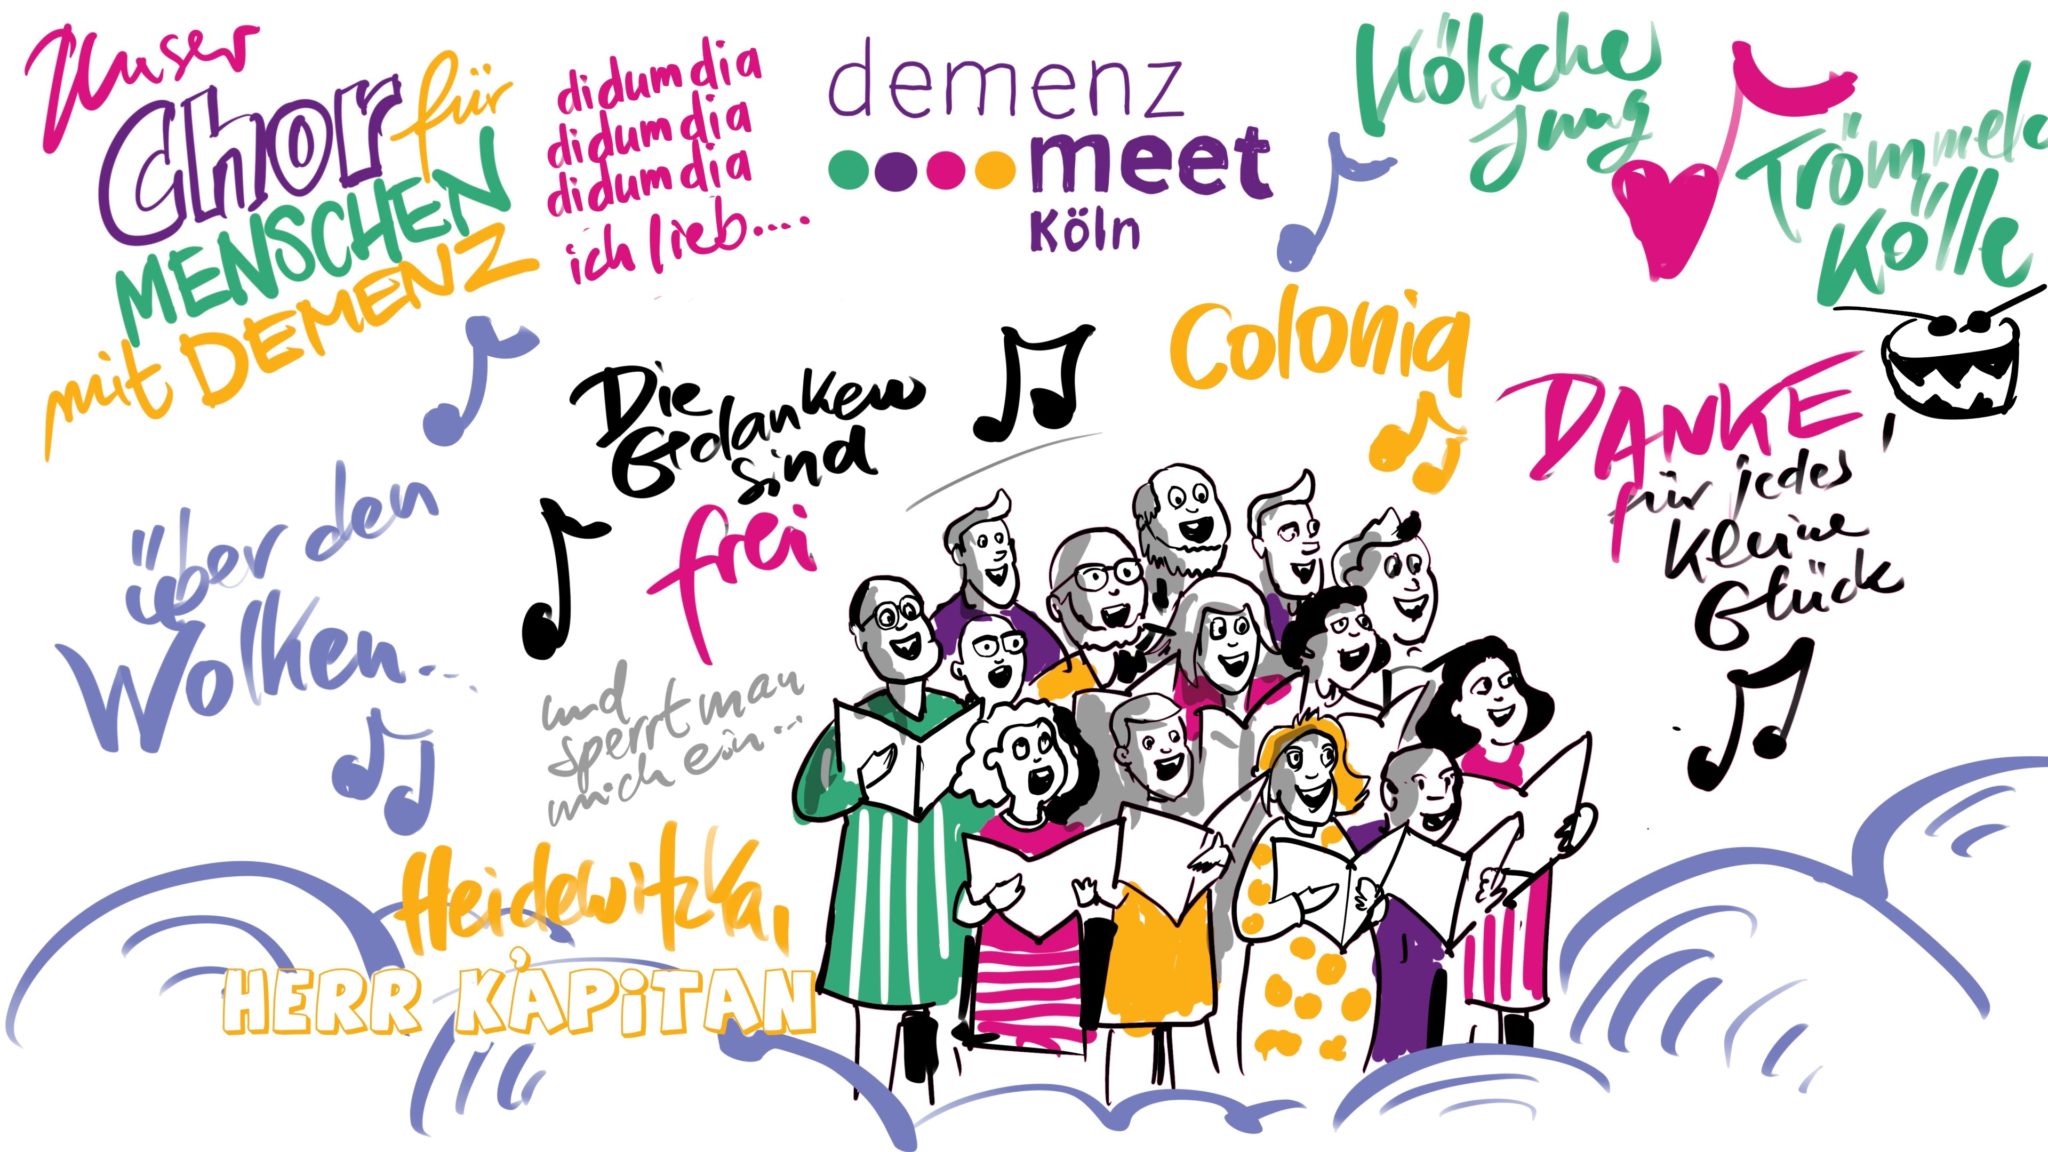 Unser
Chor für
MENSCHEN
mit DEMENZ
didumdia
didumdia
didumdia
ich lieb....
demenz
meet
Köln
Kölsche
Jung
Trömmele
Kölle
Colonia
Die
Gedanken
sind
frei
DANKE
für jedes
kleine
Glück
über den
Wolken...
und
sperrt man
mich ein...
Heidewitzka,
HERR KAPiTAN